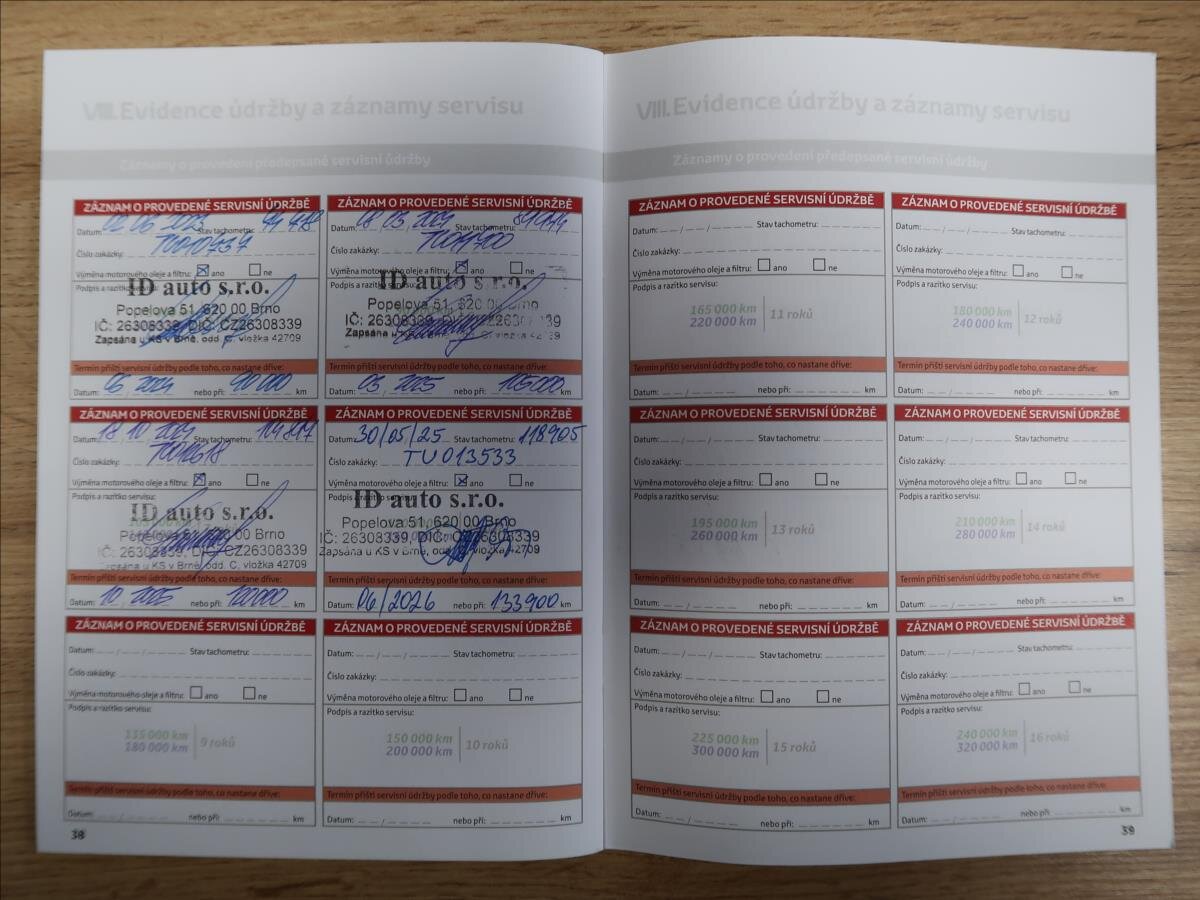 VIII. Evidence údržby a záznamy servisu
Záznamy o provedení předepsané servisní údržby
ZÁZNAM O PROVEDENÉ SERVISNÍ ÚDRŽBĚ
Datum: 02 06 2023 Stav tachometru:
Číslo zakázky: TU010737
Výměna motorového oleje a filtru: ano ne
Podpis a razítko servisu:
ID auto s.r.o.
Popelova 51, 620 00 Brno
IČ: 26308339, DIČ: CZ26308339
Zapsána u KS v Brně, odd. C, vložka 42709
Termín příští servisní údržby podle toho, co nastane dříve:
Datum: 06 2024 nebo při: 90 000 km
ZÁZNAM O PROVEDENÉ SERVISNÍ ÚDRŽBĚ
Datum: Stav tachometru:
Číslo zakázky:
Výměna motorového oleje a filtru: ano ne
Podpis a razítko servisu:
ID auto s.r.o.
Popelova 51, 620 00 Brno
IČ: 26308339, DIČ: CZ26308339
Zapsána u KS v Brně, odd. C, vložka 42709
Termín příští servisní údržby podle toho, co nastane dříve:
Datum: 03 2025 nebo při: 105000 km
ZÁZNAM O PROVEDENÉ SERVISNÍ ÚDRŽBĚ
Datum: 18 10 2024 Stav tachometru:
Číslo zakázky: TU012618
Výměna motorového oleje a filtru: ano ne
Podpis a razítko servisu:
ID auto s.r.o.
Popelova 51, 620 00 Brno
IČ: 26308339, DIČ: CZ26308339
Zapsána u KS v Brně, odd. C, vložka 42709
Termín příští servisní údržby podle toho, co nastane dříve:
Datum: 10 2025 nebo při: 120000 km
ZÁZNAM O PROVEDENÉ SERVISNÍ ÚDRŽBĚ
Datum: 30/05/25 Stav tachometru: 118905
Číslo zakázky: TU013533
Výměna motorového oleje a filtru: ano ne
Podpis a razítko servisu:
ID auto s.r.o.
Popelova 51, 620 00 Brno
IČ: 26308339, DIČ: CZ26308339
Zapsána u KS v Brně, odd. C, vložka 42709
Termín příští servisní údržby podle toho, co nastane dříve:
Datum: 06/2026 nebo při: 133900 km
ZÁZNAM O PROVEDENÉ SERVISNÍ ÚDRŽBĚ
Datum: Stav tachometru:
Číslo zakázky:
Výměna motorového oleje a filtru: ano ne
Podpis a razítko servisu:
135 000 km
180 000 km
9 roků
Termín příští servisní údržby podle toho, co nastane dříve:
Datum: nebo při: km
ZÁZNAM O PROVEDENÉ SERVISNÍ ÚDRŽBĚ
Datum: Stav tachometru:
Číslo zakázky:
Výměna motorového oleje a filtru: ano ne
Podpis a razítko servisu:
150 000 km
200 000 km
10 roků
Termín příští servisní údržby podle toho, co nastane dříve:
Datum: nebo při: km
38
VIII. Evidence údržby a záznamy servisu
Záznamy o provedení předepsané servisní údržby
ZÁZNAM O PROVEDENÉ SERVISNÍ ÚDRŽBĚ
Datum: Stav tachometru:
Číslo zakázky:
Výměna motorového oleje a filtru: ano ne
Podpis a razítko servisu:
165 000 km
220 000 km
11 roků
Termín příští servisní údržby podle toho, co nastane dříve:
Datum: nebo při: km
ZÁZNAM O PROVEDENÉ SERVISNÍ ÚDRŽBĚ
Datum: Stav tachometru:
Číslo zakázky:
Výměna motorového oleje a filtru: ano ne
Podpis a razítko servisu:
180 000 km
240 000 km
12 roků
Termín příští servisní údržby podle toho, co nastane dříve:
Datum: nebo při: km
ZÁZNAM O PROVEDENÉ SERVISNÍ ÚDRŽBĚ
Datum: Stav tachometru:
Číslo zakázky:
Výměna motorového oleje a filtru: ano ne
Podpis a razítko servisu:
195 000 km
260 000 km
13 roků
Termín příští servisní údržby podle toho, co nastane dříve:
Datum: nebo při: km
ZÁZNAM O PROVEDENÉ SERVISNÍ ÚDRŽBĚ
Datum: Stav tachometru:
Číslo zakázky:
Výměna motorového oleje a filtru: ano ne
Podpis a razítko servisu:
210 000 km
280 000 km
14 roků
Termín příští servisní údržby podle toho, co nastane dříve:
Datum: nebo při: km
ZÁZNAM O PROVEDENÉ SERVISNÍ ÚDRŽBĚ
Datum: Stav tachometru:
Číslo zakázky:
Výměna motorového oleje a filtru: ano ne
Podpis a razítko servisu:
225 000 km
300 000 km
15 roků
Termín příští servisní údržby podle toho, co nastane dříve:
Datum: nebo při: km
ZÁZNAM O PROVEDENÉ SERVISNÍ ÚDRŽBĚ
Datum: Stav tachometru:
Číslo zakázky:
Výměna motorového oleje a filtru: ano ne
Podpis a razítko servisu:
240 000 km
320 000 km
16 roků
Termín příští servisní údržby podle toho, co nastane dříve:
Datum: nebo při: km
39